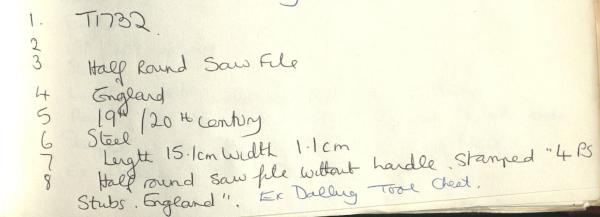 1. T1732.
2
3 Half Round Saw File
4 England
5 19th/20th Century
6 Steel
7 Length 15.1cm Width 1.1cm
8 Half round saw file without handle. Stamped "4 PS
Stubs. England". Ex Tool Chest.